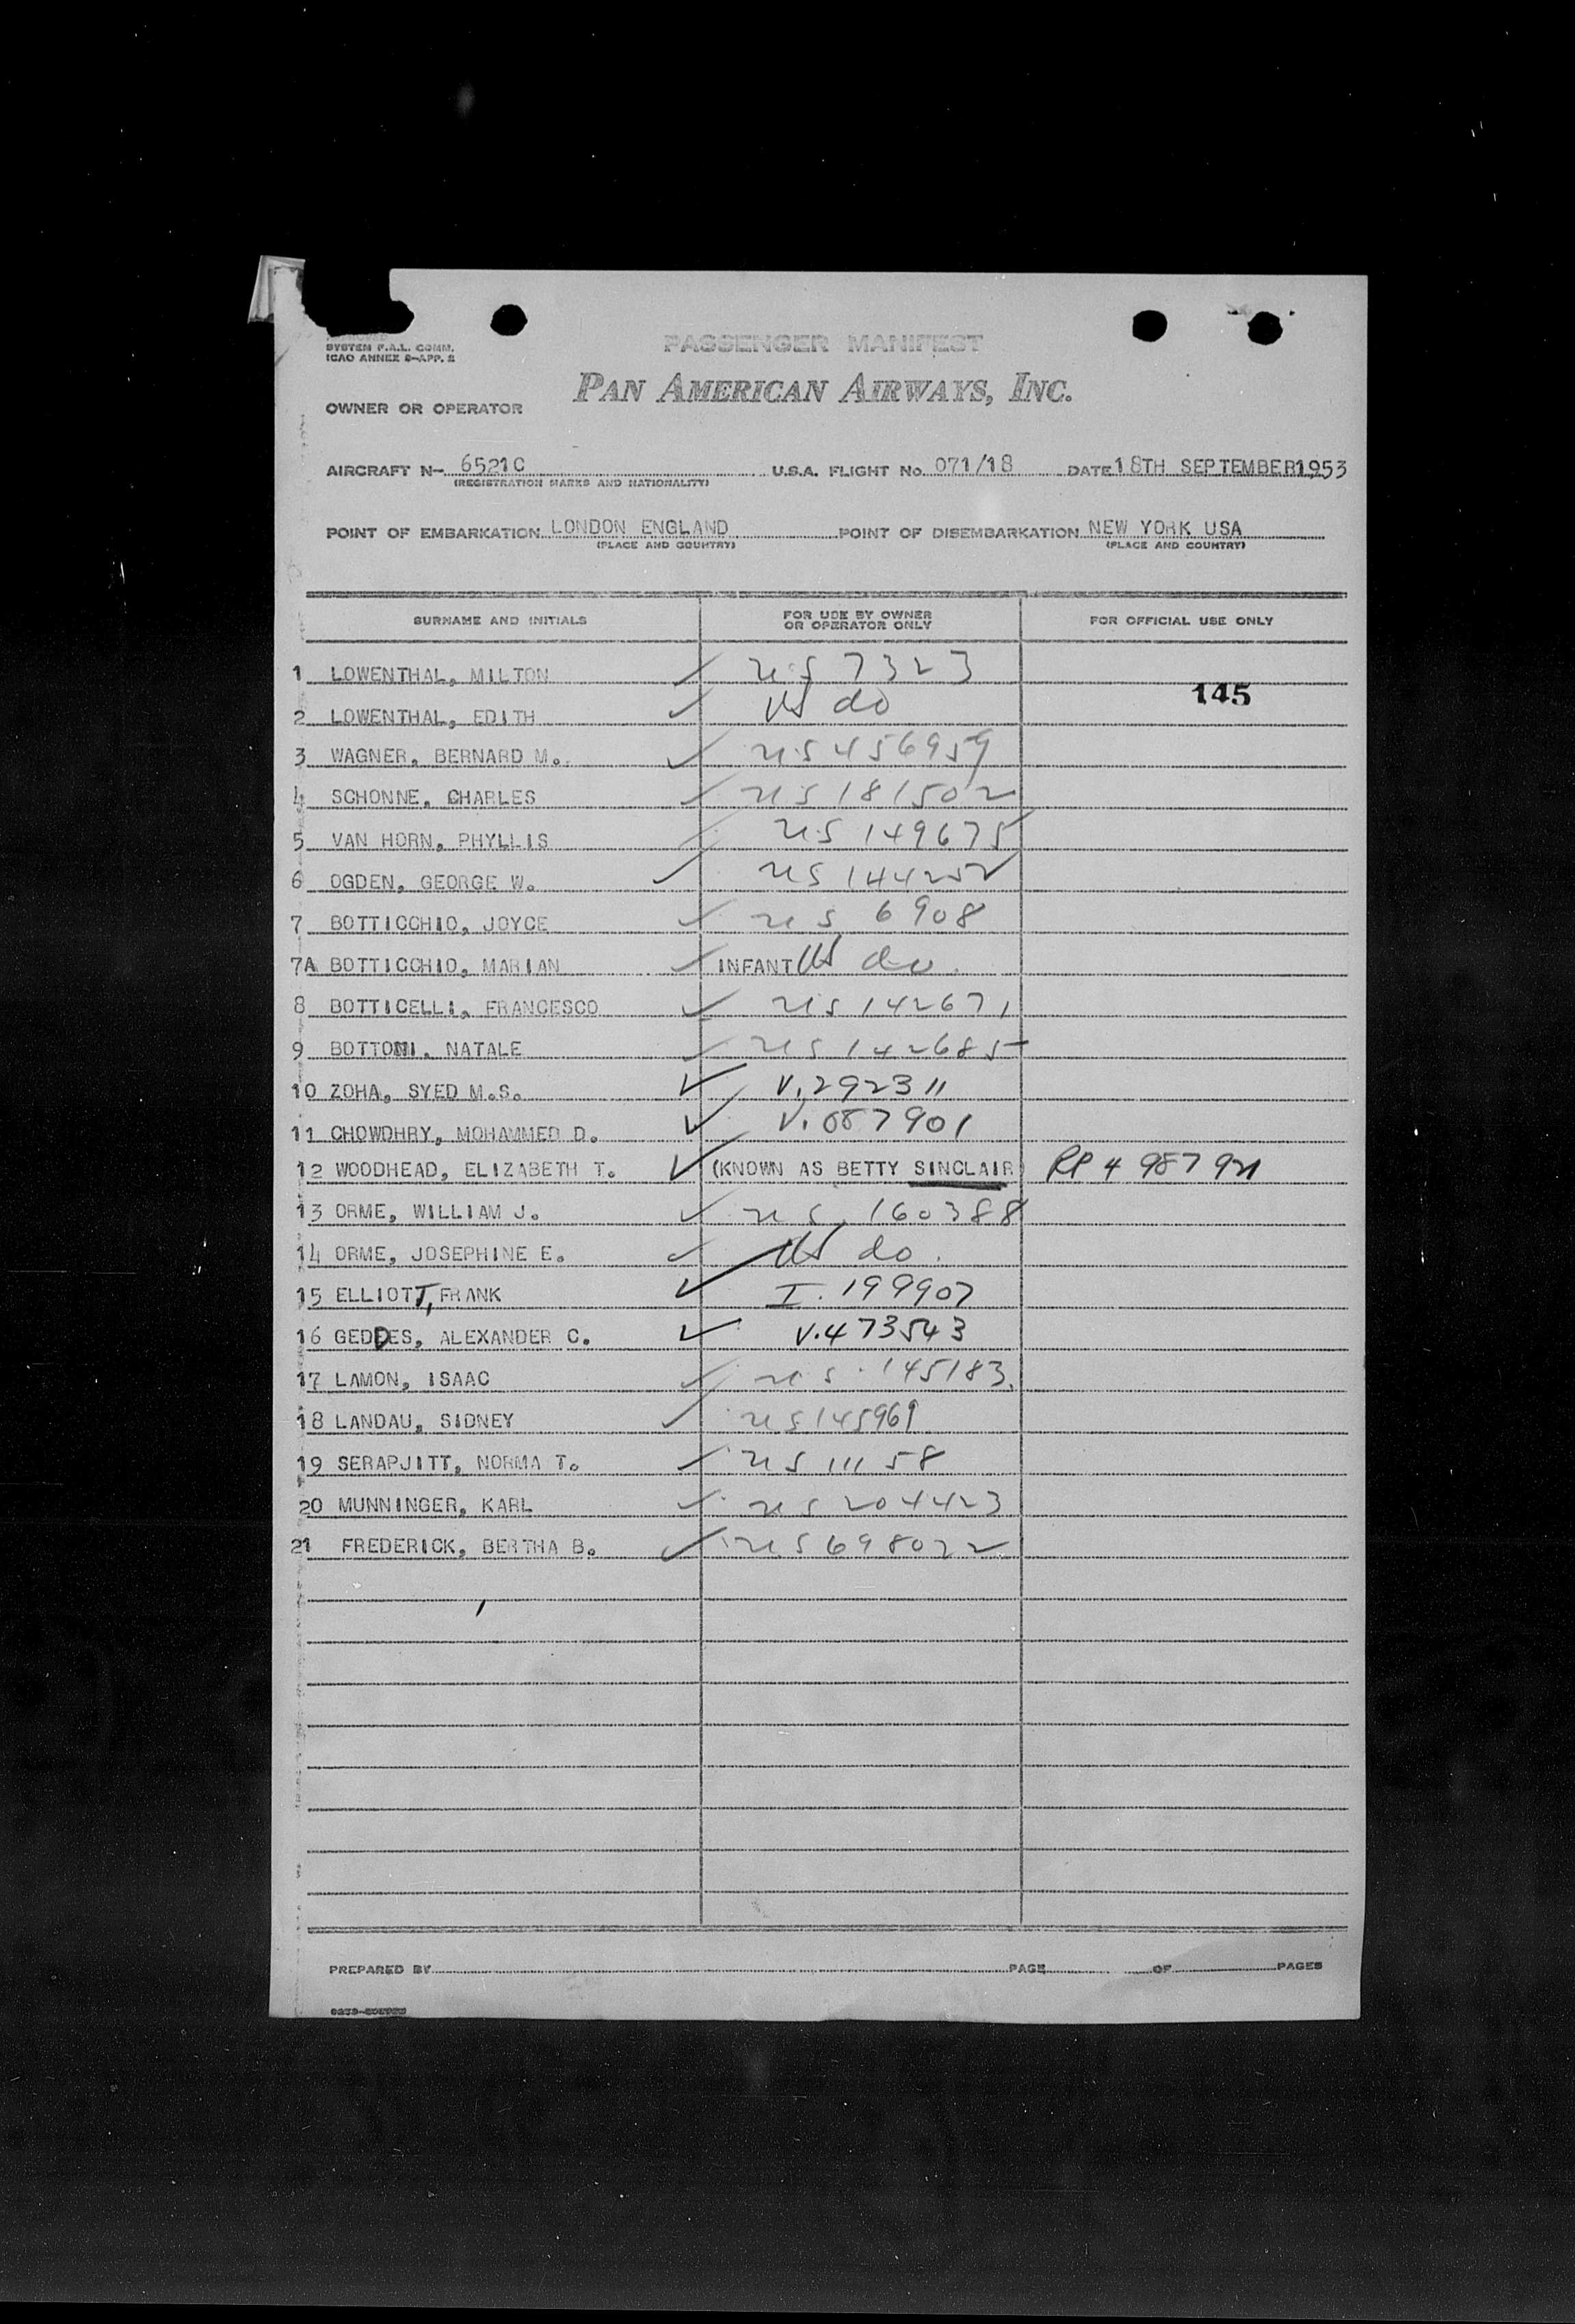 SYSTEM F.A.L. COMM.
ICAO ANNEX 9-APP. 2
PASSENGER MANIFEST
PAN AMERICAN AIRWAYS, INC.
OWNER OR OPERATOR
AIRCRAFT N- 6521C U.S.A. FLIGHT No. 071/18 DATE 18TH SEPTEMBER 1953
(REGISTRATION MARKS AND NATIONALITY)
POINT OF EMBARKATION LONDON ENGLAND POINT OF DISEMBARKATION NEW YORK USA
(PLACE AND COUNTRY) (PLACE AND COUNTRY)
SURNAME AND INITIALS FOR USE BY OWNER OR OPERATOR ONLY FOR OFFICIAL USE ONLY
1 LOWENTHAL, MILTON ✓ US 7323
145
2 LOWENTHAL, EDITH ✓ US do
3 WAGNER, BERNARD M. ✓ US 456959
4 SCHONNE, CHARLES ✓ US 181502
5 VAN HORN, PHYLLIS ✓ US 149675
6 OGDEN, GEORGE W. ✓ US 144252
7 BOTTICCHIO, JOYCE ✓ US 6908
7A BOTTICCHIO, MARIAN ✓ INFANT US do.
8 BOTTICELLI, FRANCESCO ✓ US 142671
9 BOTTONI, NATALE ✓ US 142685
10 ZOHA, SYED M.S. ✓ V.292311
11 CHOWDHRY, MOHAMMED D. ✓ V.087901
12 WOODHEAD, ELIZABETH T. ✓ (KNOWN AS BETTY SINCLAIR) RP 4 987 921
13 ORME, WILLIAM J. ✓ US 160388
14 ORME, JOSEPHINE E. ✓ US do.
15 ELLIOTT, FRANK ✓ I.199907
16 GEDDES, ALEXANDER C. ✓ V.473543
17 LAMON, ISAAC ✓ US 145183.
18 LANDAU, SIDNEY ✓ US 145961
19 SERAPJITT, NORMA T. ✓ US 11158
20 MUNNINGER, KARL ✓ US 204423
21 FREDERICK, BERTHA B. ✓ US 698022
PREPARED BY PAGE OF PAGES